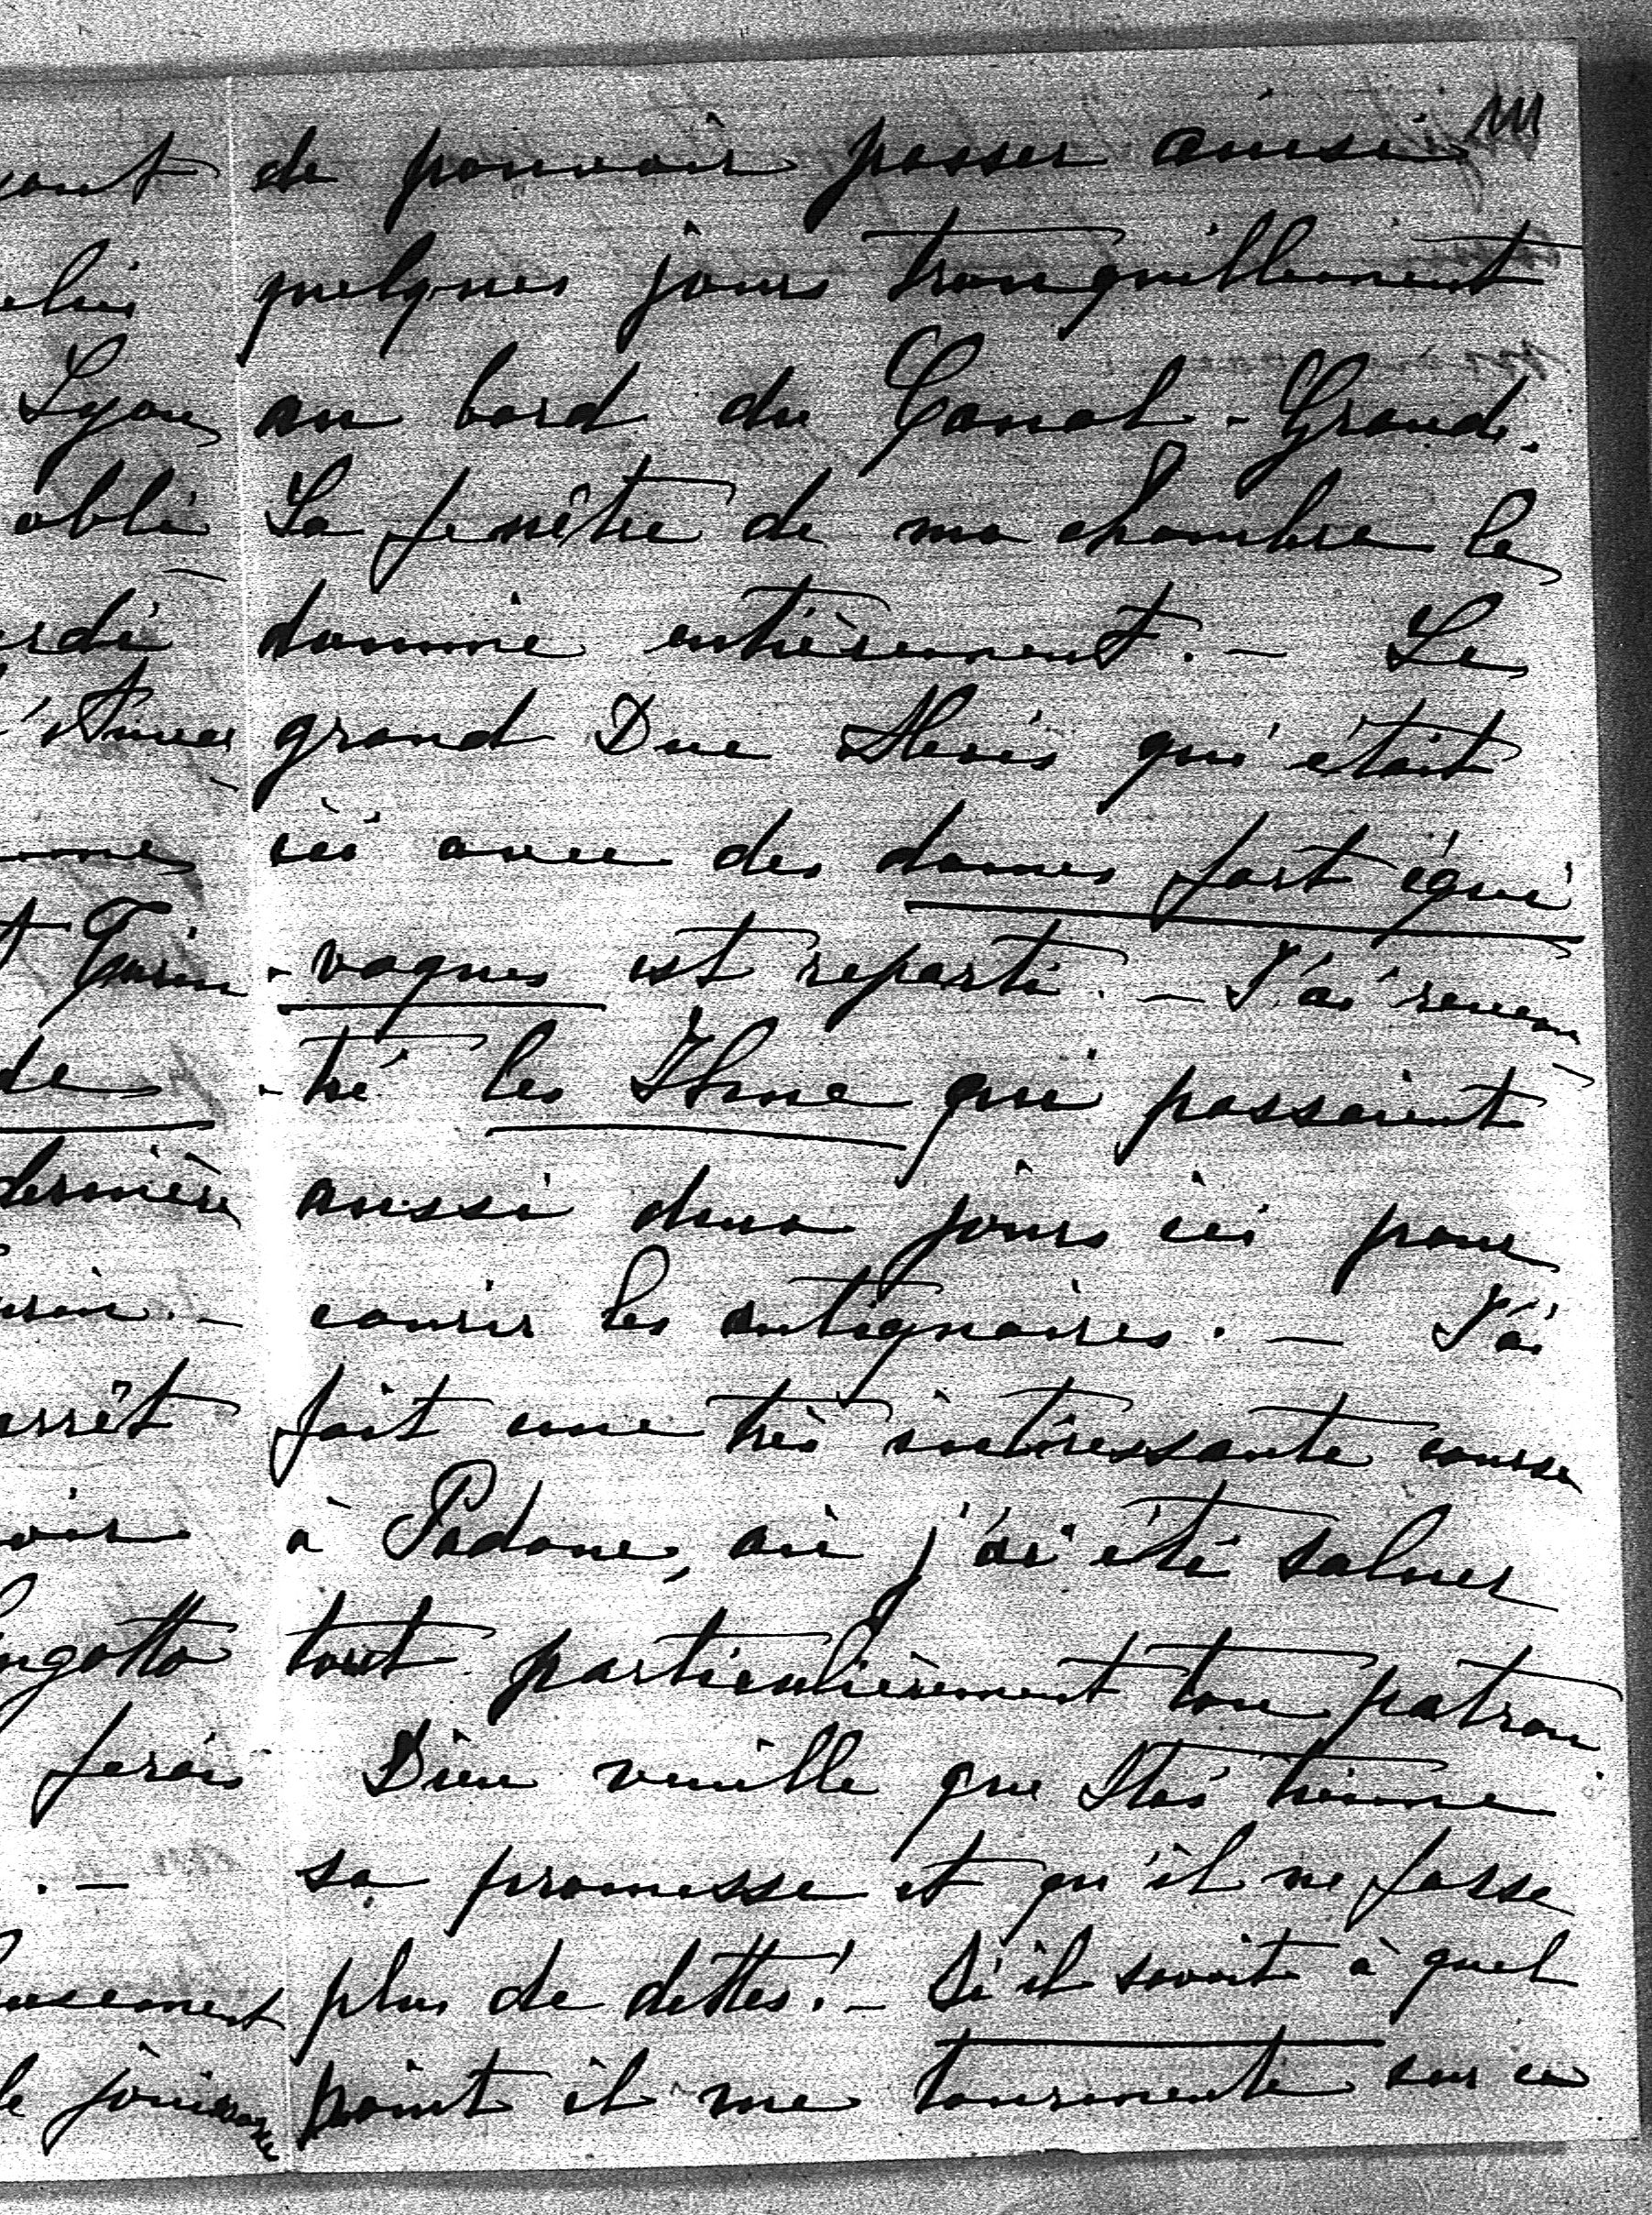 111
de pouvoir passer ainsi
quelques jours tranquillement
au bord du Canal-Grande.
La fenêtre de ma chambre le
domine entièrement. - Le
grand Duc Alexis qui était
ici avec des dames fort équi
-vaques est reparti. - J'ai rencon
-tré les qui passaient
aussi deux jours ici pour
courir les antiquaires. - J'ai
fait une très intéressante course
à Padoue, où j'ai été saluer
tout particulièrement ton patron.
Dieu veuille que tienne
sa promesse et qu'il ne fasse
plus de dettes! - Si il savait à quel
point il me tourmente sur ce
Lyon
obli
Turin
de
dernière
arrêt
ferais